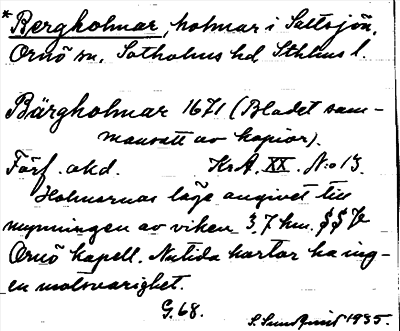 *Bergholmar, holmar i Saltsjön,
Ornö sn, Sotholms hd Sthlms l.
Bärgholmar 1671 (Bladet sam-
mansatt av kopior).
Förf. okd. KrA XX. N:o 13.
Holmarnas läge angivet till
mynningen av viken 3,7 km.
Ornö kapell. Nutida kartor ha ing-
en motsvarighet.
G. 68.
S. Sundquist 1935.